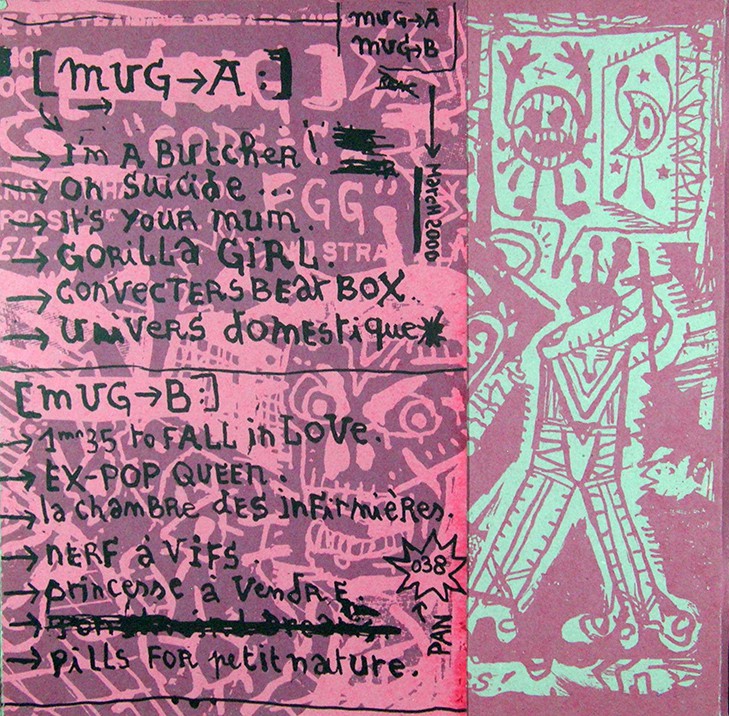 MUG→A
MUG→B
[MUG→A:]
→ I'm A Butcher!
→ on Suicide...
→ It's Your mum.
→ GORILLA GIRL.
→ CONVECTERS BEAT BOX
→ univers domestique*
March 2000
EGG
STRA
[MUG→B:]
→ 1mn35 to FALL in LOVe.
→ EX-POP QUEEN.
→ la chambre des infirmières.
→ NERF à VIFS.
→ princesse à VendRE.
→ PILLS FOR petit nature.
038
PAN